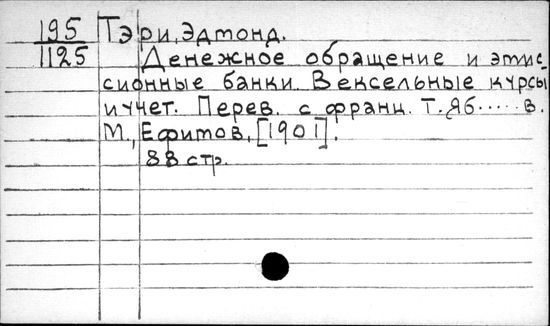 195 Тэри, Эдмонд.
1125 Денежное обращение и эмис-
сионные банки. Вексельные курсы
и учет. Перев. с франц. Т. Яб.....в.
М., Ефимов, [1901].
88 стр.